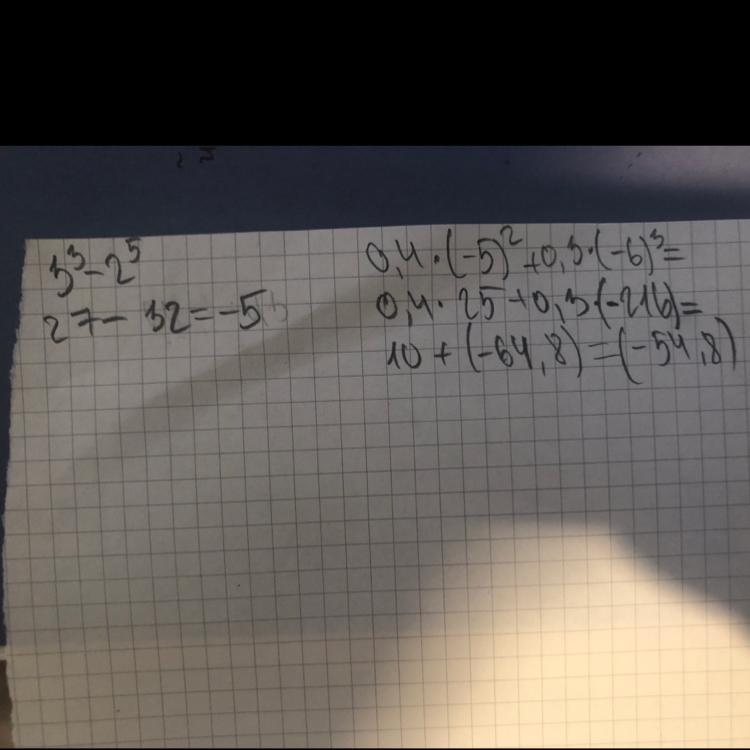 3³-2⁵
27-32=-5
0,4·(-5)²+0,3·(-6)³=
0,4·25+0,3(-216)=
10+(-64,8)=(-54,8)